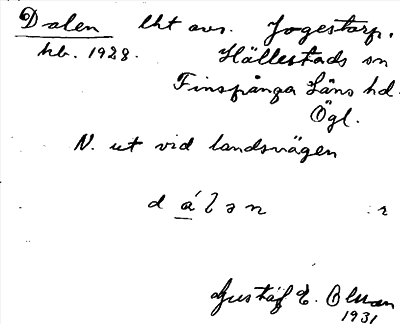 Dalen lht avs. Jogestorp.
hb. 1928. Hällestads sn
Finspånga Läns hd.
Ögl.
N. ut vid landsvägen
d á l ə n : r
Gustaf E. Olsson
1931